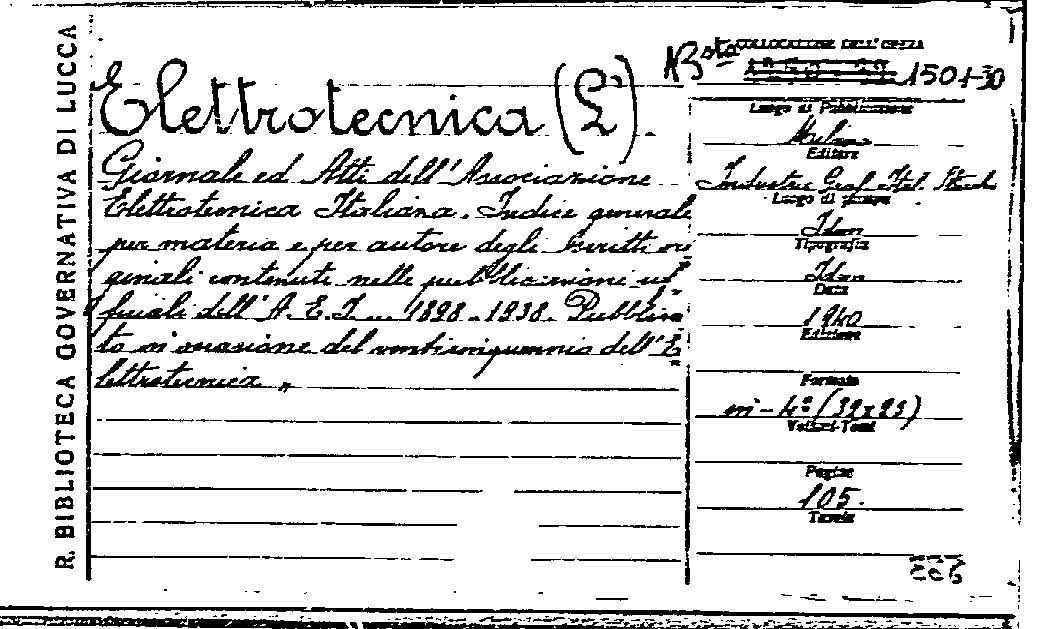 R. BIBLIOTECA GOVERNATIVA DI LUCCA
Elettrotecnica (L').
Giornale ed Atti dell'Associazione
Elettrotecnica Italiana. Indice generale
per materia e per autore degli scritti ori
ginali contenuti nelle pubblicazioni uf=
ficiali dell'A. E. I... 1898-1938. Pubblica
to in occasione del venticinquennio dell'"E
lettrotecnica"
COLLOCAZIONE DELL'OPERA
Bsta 1501-30
Luogo di Pubblicazione
Milano
Editore
Industrie Graf. Ital. Stucchi
Luogo di stampa
Idem
Tipografia
Idem
Data
1940
Edizione
Formato
in-4° (32x23)
Volumi-Tomi
Pagine
105.
Tavole